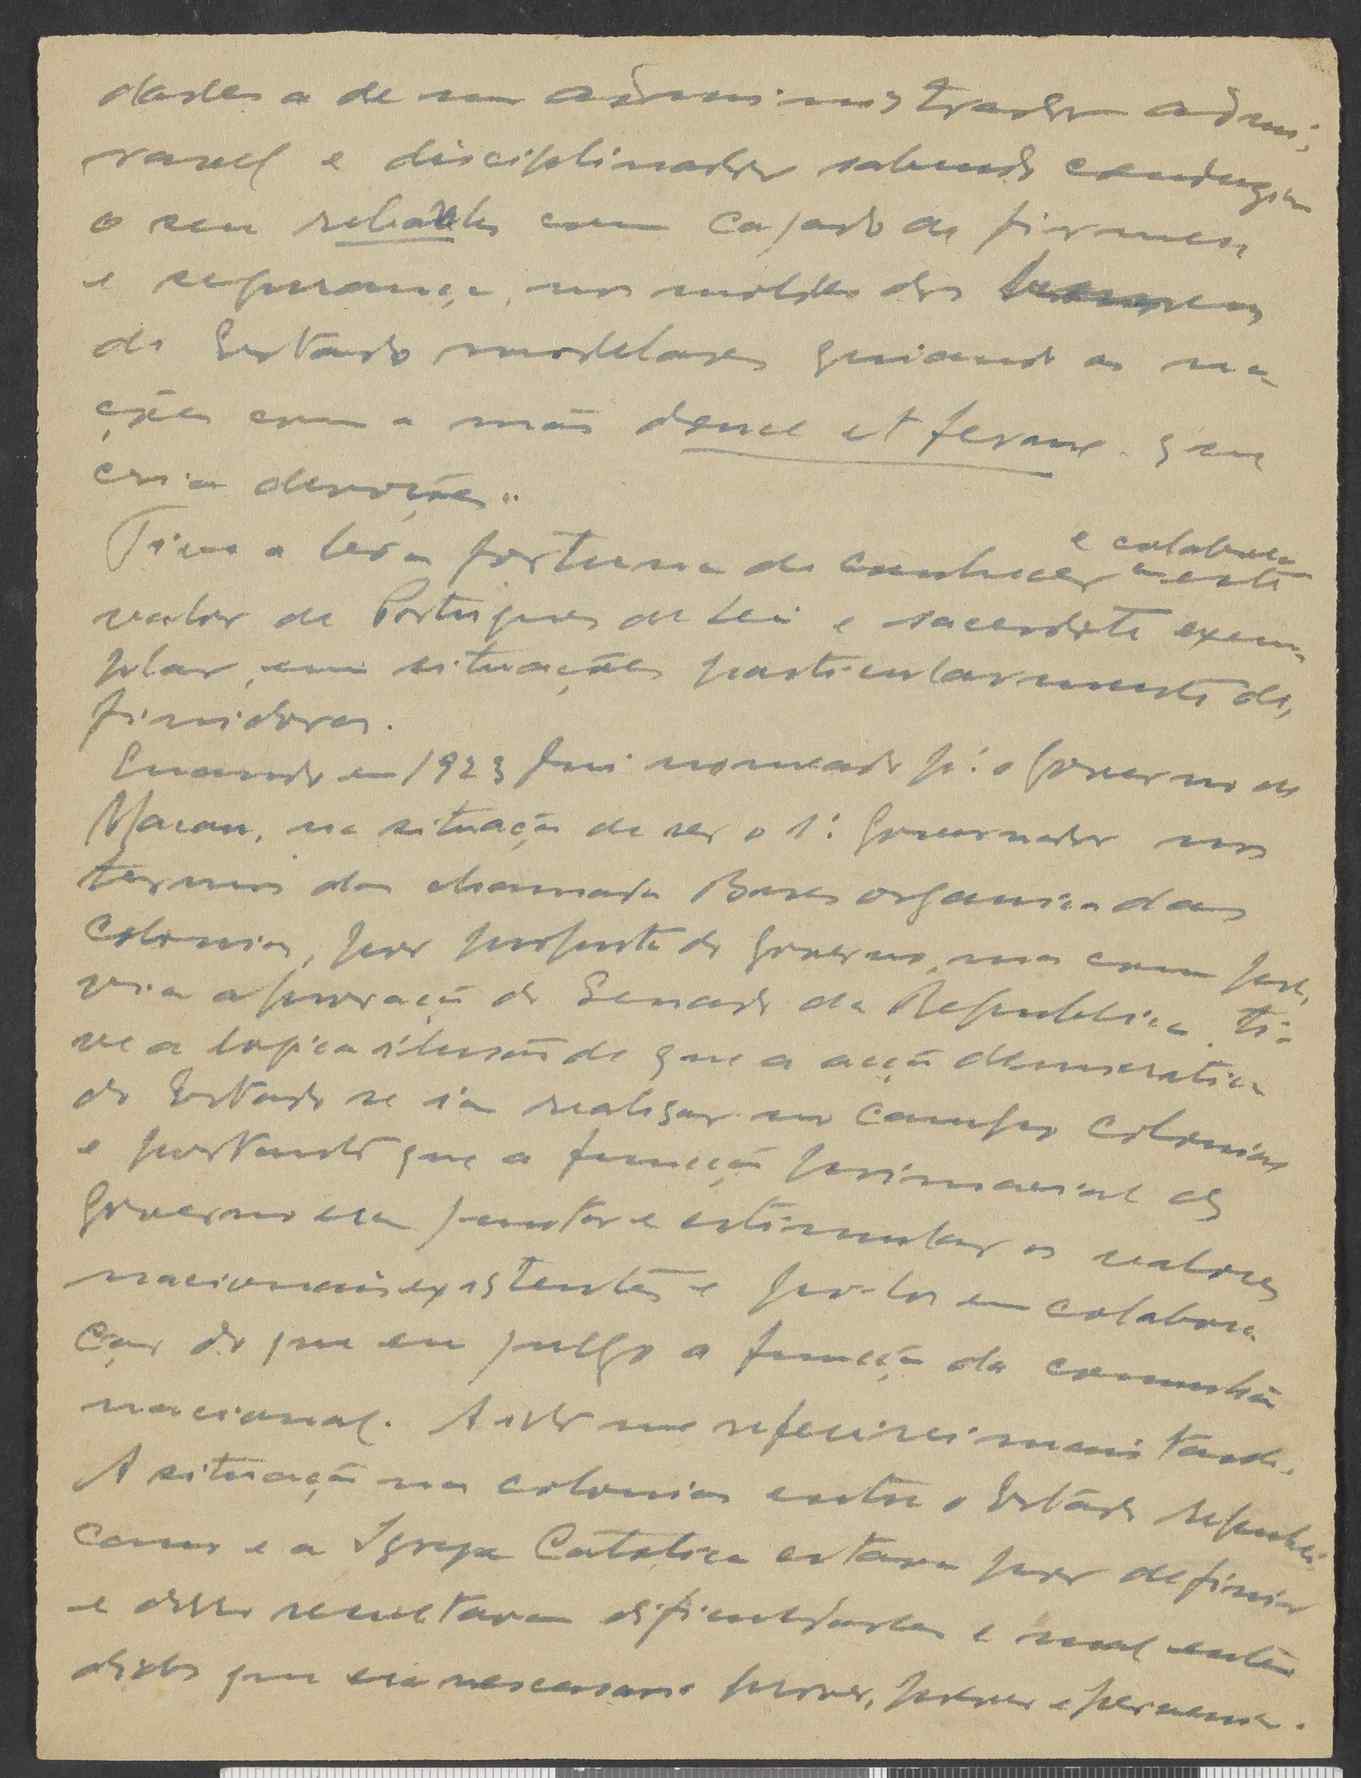 dades a de um administrador admi-
ravel e disciplinador sabendo conduzir
o seu rebanho com cajado de firmesa
e segurança, nos moldes dos homens
de Estado modelares guiando as na-
ções com a mão douce et ferme que
cria devoções.
Tive a boa fortuna de conhecer e colaborar com este
valor de Portuguez de lei e sacerdote exem-
plar, em situações particularmente de-
finidoras.
Quando em 1923 fui nomeado p.ª o Governo de
Macau, na situação de ser o 1.º Governador nos
termos das chamadas Bases organicas das
colonias, por proposta do Governo, mas com pre-
via aprovação do Senado da Republica, ti-
ve a logica ilusão de que a acção democratica
do Estado se ia realisar no campo colonial
e portanto que a funcção primacial do
Governo era juntar e estimular os valores
nacionais existentes e po-los em colabora-
ção do que eu julgo a funcção da comunhão
nacional. A isto me referirei mais tarde.
A situação nas colonias entre o Estado republi-
cano e a Igreja Catolica estava por definir
e disso resultavam dificuldades e mal enten-
didos que era necessario prover, prever e